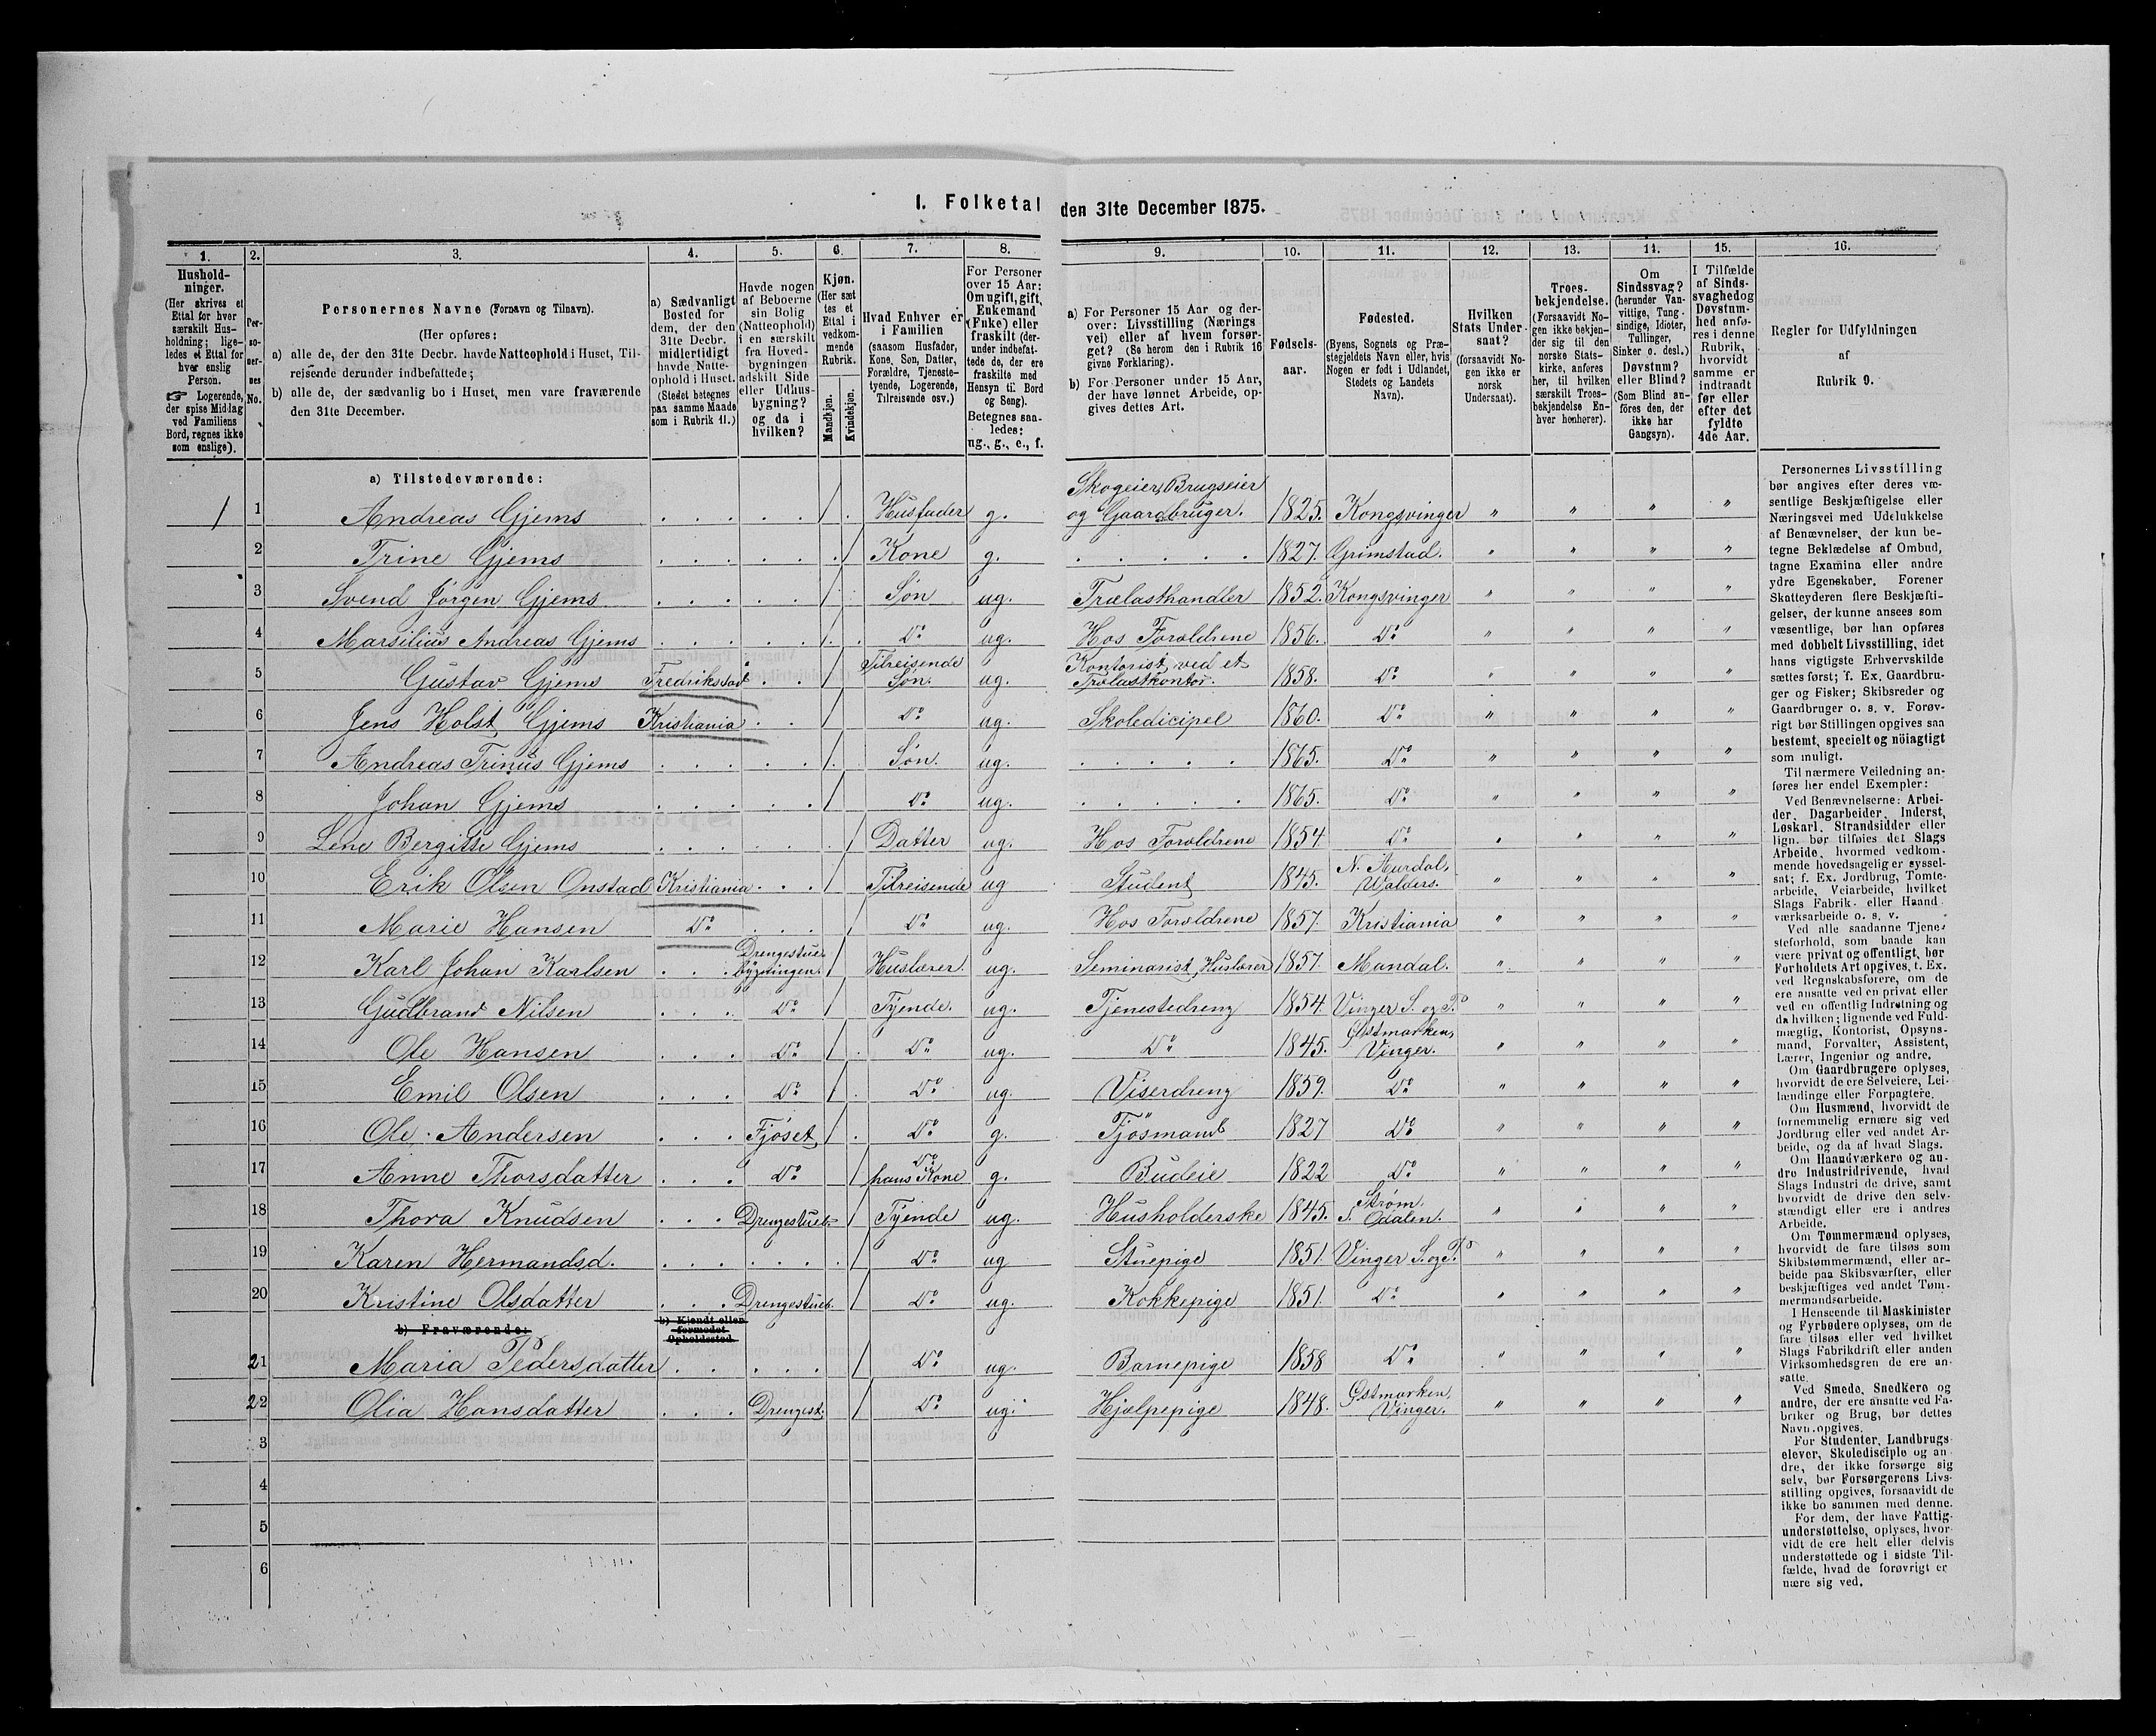 I. Folketal den 31te December 1875.
1. 2. 3. 4. 5. 6. 7. 8. 9. 10. 11. 12. 13. 14. 15. 16.
Husholdninger.
(Her skrives et
Ettal for hver
særskilt Hus-
holdning; lige-
ledes et Ettal for
hver enslig
Person.
☞ Logerende,
der spise Middag
ved Familiens
Bord, regnes ikke
som enslige).
Per-
so-
ner-
nes
No.
Personernes Navne (Fornavn og Tilnavn).
(Her opføres:
a) alle de, der den 31te Decbr. havde Natteophold i Huset, Til-
reisende derunder indbefattede;
b) alle de, der sædvanlig bo i Huset, men vare fraværende
den 31te December.
a) Sædvanligt
Bosted for
dem, der den
31te Decbr.
midlertidigt
havde Natte-
ophold i Huset.
(Stedet betegnes
paa samme Maade
som i Rubrik 11.)
Havde nogen
af Beboerne
sin Bolig
(Natteophold)
i en særskilt
fra Hoved-
bygningen
adskilt Side
eller Udhus-
bygning?
og da i
hvilken?
Kjøn.
(Her sæt
tes et
Ettal i
vedkom-
mende
Rubrik.
Mandkjøn.
Kvindekjøn.
Hvad Enhver er
i Familien
(saasom Husfader,
Kone, Søn, Datter,
Forældre, Tjeneste-
tyende, Logerende,
Tilreisende osv.)
For Personer
over 15 Aar:
Om ugift, gift,
Enkemand
(Enke) eller
fraskilt (der-
under indbefat-
tede de, der ere
fraskilte med
Hensyn til Bord
og Seng).
Betegnes saa-
ledes:
ug., g., e., f.
a) For Personer 15 Aar og der-
over: Livsstilling (Nærings
vei) eller af hvem forsør-
get? (Se herom den i Rubrik 16
givne Forklaring).
b) For Personer under 15 Aar,
der have lønnet Arbeide, op-
gives dettes Art.
Fødsels-
aar.
Fødested.
(Byens, Sognets og Præ-
stegjeldets Navn eller, hvis
Nogen er født i Udlandet,
Stedets og Landets
Navn).
Hvilken
Stats Under-
saat?
(forsaavidt No-
gen ikke er
norsk
Undersaat).
Troes-
bekjendelse.
(Forsaavidt No-
gen ikke bekjen-
der sig til den
norske Stats-
kirke, anføres
her, til hvilken
særskilt Troes-
bekjendelse En-
hver henhører).
Om
Sindssvag?
(herunder Van-
vittige, Tung-
sindige, Idioter,
Tullinger,
Sinker o. desl.)
Døvstum?
eller Blind?
(Som Blind an-
føres den, der
ikke har
Gangsyn).
I Tilfælde
af Sinds-
svaghed og
Døvstum-
hed onfø-
res i denne
Rubrik,
hvorvidt
samme er
indtraadt
før eller
efter det
fyldte
4de Aar.
Regler for Udfyldningen
af
Rubrik 9.
a) Tilstedeværende:
1 1 Andreas Gjems 1 Husfader g. Skogeier, Brugseier og Gaardbruger. 1825. Kongsvinger " " " "
2 Trine Gjems 1 Kone g. 1827. Grimstad. " " " "
3 Svend Jörgen Gjems 1 Søn ug. Trælasthandler 1852. Kongsvinger " " " "
4 Marsilius Andreas Gjems 1 Do ug. Hos Foreldrene 1856. Do " " " "
5 Gustav Gjems Fredriksstad 1 Tilreisende Søn. ug. Kontorist ved et Trælastkontor. 1858. Do " " " "
6 Jens Holst Gjems Kristiania 1 Do ug. Skoledicipel 1860. Do " " " "
7 Andreas Trinus Gjems 1 Søn. ug. 1865. Do " " " "
8 Johan Gjems 1 Do ug. 1865. Do " " " "
9 Lene Bergitte Gjems 1 Datter ug. Hos Foreldrene 1854. Do " " " "
10 Erik Olsen Onstad Kristiania 1 Tilreisende ug Student 1845. N. Aurdal, Walders. " " " "
11 Marie Hansen Do 1 Do ug. Hos Foreldrene 1857. Kristiania " " " "
12 Karl Johan Karlsen Drengestue- bygningen. 1 Huslærer. ug. Seminarist, Huslærer 1857. Mandal. " " " "
13 Gudbrand Nilsen Do 1 Tyende. ug. Tjenestedreng 1854. Vinger S. og P. " " " "
14 Ole Hansen Do 1 Do ug. Do 1845. Østmarken, Vinger. " " " "
15 Emil Olsen Do 1 Do ug. Viserdreng 1859. Do " " " "
16 Ole Andersen Fjöset 1 Do g. Fjösmand 1827 Do " " " "
17 Anne Thorsdatter Do 1 Do hans Kone g. Budeie 1822 Do " " " "
18 Thora Knudsen Drengestueb. 1 Tyende ug. Husholderske 1845. Strøm. S. Odalen. " " " "
19 Karen Hermandsd. 1 Do ug Stuepige 1851. Vinger S. og P. " " " "
20 Kristine Olsdatter Drengestueb. 1 Do ug. Kokkepige 1851. Do " " " "
b) Fraværende: b) Kjendt eller
formodet
Opholdssted.
21 Maria Pedersdatter 1 Do ug. Barnepige 1858 Do " " " "
22 Olia Hansdatter Drengest. 1 Do ug. Hjælpepige 1848. Østmarken, Vinger. " " " "
3
4
5
6
Personernes Livsstilling
bør angives efter deres væ-
sentlige Beskjæftigelse eller
Næringsvei med Udelukkelse
af Benævnelser, der kun be-
tegne Beklædelse af Ombud,
tagne Examina eller andre
ydre Egenskaber. Forener
Skatteyderen flere Beskjæfti-
gelser, der kunne ansees som
væsentlige, bør han opføres
med dobbelt Livsstilling, idet
hans vigtigste Erhvervskilde
sættes først; f. Ex. Gaardbru-
ger og Fisker; Skibsreder og
Gaardbruger o. s. v. Forøv-
rigt bør Stillingen opgives saa
bestemt, specielt og nöiagtigt
som muligt.
Til nærmere Veiledning an-
føres her endel Exempler:
Ved Benævnelserne: Arbei-
der, Dagarbeider, Inderst,
Løskarl, Strandsidder eller
lign. bør tilføies det Slags
Arbeide, hvormed vedkom-
mende hovedsagelig er syssel-
sat; f. Ex. Jordbrug, Tomte-
arbeide, Veiarbeide, hvilket
Slags Fabrik- eller Haand-
værksarbeide o. s. v.
Ved alle saadanne Tjene-
steforhold, som baade kan
være privat og offentligt, bør
Forholdets Art opgives, t. Ex.
ved Regnskabsførere, om de
ere ansatte ved en privat eller
ved en offentlig Indretning og
da hvilken; lignende ved Fuld-
mægtig, Kontorist, Opsyns-
mand, Forvalter, Assistent,
Lærer, Ingeniør og andre.
Om Gaardbrugere oplyses,
hvorvidt de ere Selveiere, Lei-
lændinge eller Forpagtere.
Om Husmænd, hvorvidt de
fornemmelig ernære sig ved
Jordbrug eller ved andet Ar-
beide, og da af hvad Slags.
Om Haandværkere og an-
dre Industridrivende, hvad
Slags Industri de drive, samt
hvorvidt de drive den selv-
stændigt eller ere i andres
Arbeide.
Om Tømmermænd oplyses,
hvorvidt de fare tilsøs som
Skibstømmermænd, eller ar-
beide paa Skibsværfter, eller
beskjæftiges ved andet Tøm-
mermandsarbeide.
I Henseende til Maskinister
og Fyrbødere oplyses, om de
fare tilsøs eller ved hvilket
Slags Fabrikdrift eller anden
Virksomhedsgren de ere an-
satte.
Ved Smede, Snedkere og
andre, der ere ansatte ved Fa-
briker og Brug, bør dettes
Navn opgives.
For Studenter, Landbrugs-
elever, Skoledisciple og an-
dre, der ikke forsørge sig
selv, bør Forsørgerens Livs-
stilling opgives, forsaavidt de
ikke bo sammen med denne.
For dem, der have Fattig-
understøttelse, oplyses, hvor-
vidt de ere helt eller delvis
understøttede og i sidste Til-
fælde, hvad de forøvrigt er
nære sig ved.